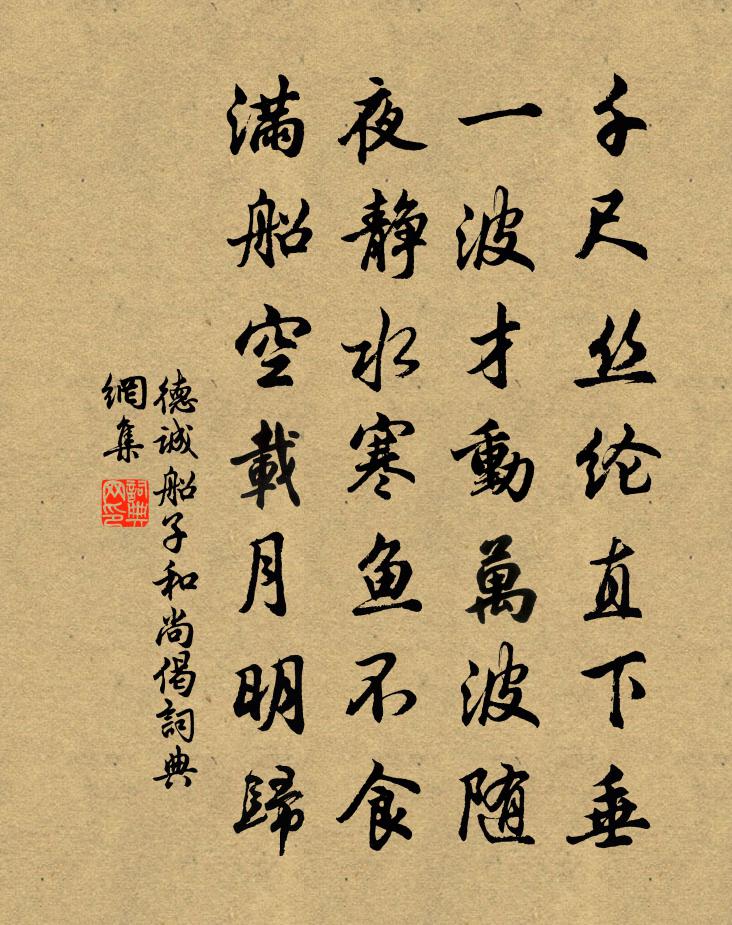 千尺丝纶直下垂
一波才動萬波随
夜静水寒鱼不食
满船空載月明歸
德诚船子和尚偈詞典
網集
詞典
网印